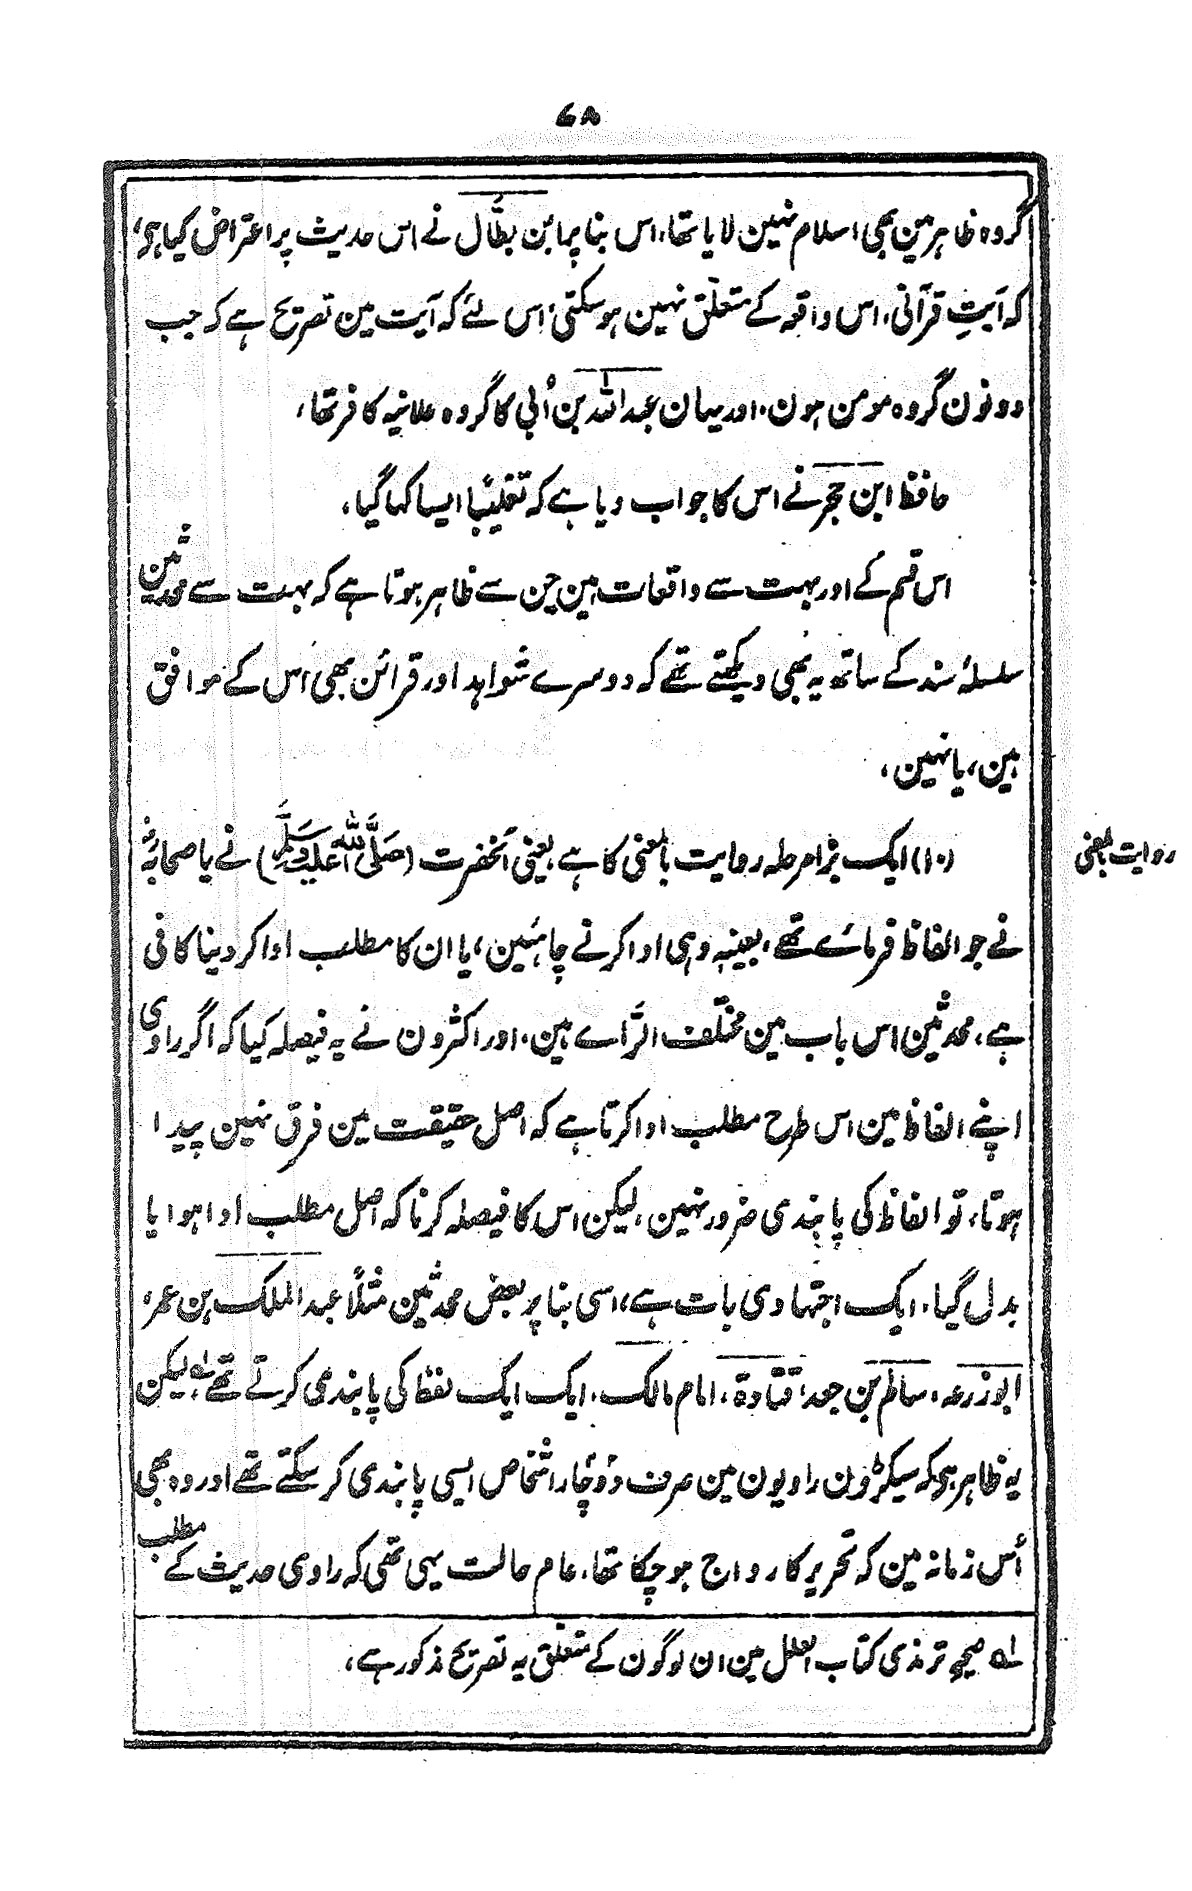 ۷۵
گروہ ظاہر مین بھی اسلام نہین لایا تھا، اس بنا پر ابن بطّال نے اس حدیث پر اعتراض کیا ہی،
کہ آیتِ قرآنی، اس واقعہ کے متعلّق نہین ہو سکتی، اِس لئے کہ آیت مین تصریح ہے کہ جب
دونون گروہ مومن ہون، اور یہان عبد اللہ بن اُبی کا گروہ علانیہ کافر تھا،
حافظ ابن حجر نے اس کا جواب دیا ہے کہ تغلیبًا ایسا کہا گیا،
اس قسم کے اور بہت سے واقعات ہین جن سے ظاہر ہوتا ہے کہ بہت سے محدثین
سلسلۂ سند کے ساتھ یہ بھی دیکھتے تھے کہ دوسرے شواہد اور قرائن بھی اس کے موافق
ہین، یا نہین،
روایت بالمعنی
(۱۰) ایک بڑا مرحلہ روایت بالمعنی کا ہے، یعنی آنحضرت (صَلَّی اللہ عَلَیْہِ وَسَلَّم) نے یا صحابہؓ
نے جو الفاظ فرمائے تھے، بعینہٖ وہی ادا کرنے چاہئین، یا ان کا مطلب ادا کر دینا کافی
ہے، محدثین اس باب مین مختلف الرَّاے ہین، اور اکثرون نے یہ فیصلہ کیا کہ اگر راوی
اپنے الفاظ مین اس طرح مطلب ادا کرتا ہے کہ اصل حقیقت مین فرق نہین پیدا
ہوتا، تو الفاظ کی پابندی ضرور نہین، لیکن اس کا فیصلہ کرنا کہ اصل مطلب ادا ہوا یا
بدل گیا، ایک اجتہادی بات ہے، اسی بنا پر بعض محدثین مثلًا عبد الملک بن عمر،
ابو زرعہ، سالم بن جعد، قتادۃ، امام مالک، ایک ایک لفظ کی پابندی کرتے تھے لہ لیکن
یہ ظاہر ہی کہ سیکڑون راویون مین صرف دو چار اشخاص ایسی پابندی کر سکتے تھے اور وہ بھی
اُس زمانہ مین کہ تحریر کا رواج ہو چکا تھا، عام حالت یہی تھی کہ راوی حدیث کے مطلب
لہ صحیح ترمذی کتاب العلل مین ان لوگون کے متعلّق یہ تصریح مذکور ہے،